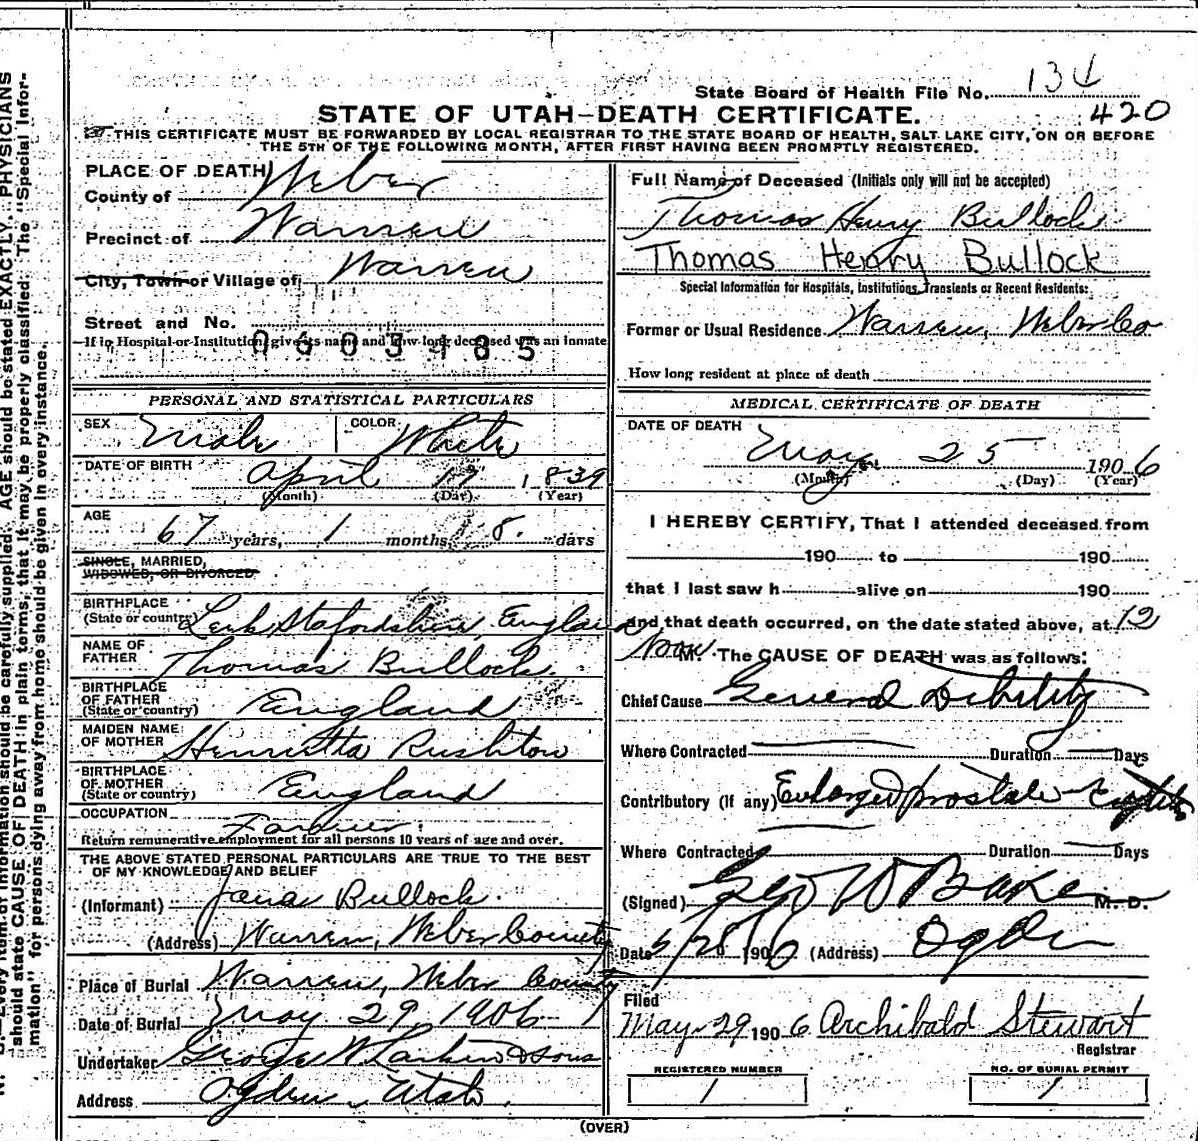 State Board of Health File No. 134
420
STATE OF UTAH-DEATH CERTIFICATE.
THIS CERTIFICATE MUST BE FORWARDED BY LOCAL REGISTRAR TO THE STATE BOARD OF HEALTH, SALT LAKE CITY, ON OR BEFORE
THE 5TH OF THE FOLLOWING MONTH, AFTER FIRST HAVING BEEN PROMPTLY REGISTERED.
PLACE OF DEATH
County of Weber
Precinct of Warren
City, Town or Village of Warren
Street and No.
If in Hospital or Institution, give its name and how long deceased was an inmate
PERSONAL AND STATISTICAL PARTICULARS
SEX Male COLOR White
DATE OF BIRTH April 17 1839
(Month) (Day) (Year)
AGE 67 years, 1 months 8. days
SINGLE, MARRIED,
WIDOWED, OR DIVORCED
BIRTHPLACE
(State or country) Leek Stafordshire, England
NAME OF
FATHER Thomas Bullock
BIRTHPLACE
OF FATHER
(State or country) England
MAIDEN NAME
OF MOTHER Henrietta Rushton
BIRTHPLACE
OF MOTHER
(State or country) England
OCCUPATION Farmer
Return remunerative employment for all persons 10 years of age and over.
THE ABOVE STATED PERSONAL PARTICULARS ARE TRUE TO THE BEST
OF MY KNOWLEDGE AND BELIEF
(Informant) Jane Bullock.
(Address) Warren, Weber County
Place of Burial Warren, Weber County
Date of Burial May 29 1906
Undertaker George W Larkin & Sons
Address Ogden, Utah.
Full Name of Deceased (Initials only will not be accepted)
Thomas Henry Bullock
Thomas Henry Bullock
Special Information for Hospitals, Institutions, Transients or Recent Residents:
Former or Usual Residence. Warren, Weber Co
How long resident at place of death
MEDICAL CERTIFICATE OF DEATH
DATE OF DEATH
May 25 1906
(Month) (Day) (Year)
I HEREBY CERTIFY, That I attended deceased from
190 to 190
that I last saw h alive on 190
and that death occurred, on the date stated above, at 12
Noon M. The CAUSE OF DEATH was as follows:
Chief Cause General Debility
Where Contracted Duration Days
Contributory (if any) Enlarged prostate
Where Contracted Duration Days
(Signed) Geo W Baker M. D.
Date 5/28 1906 (Address) Ogden
Filed
May 29 1906 Archibald Stewart
Registrar
REGISTERED NUMBER
1
NO. OF BURIAL PERMIT
1
(OVER)
should state CAUSE OF DEATH in plain terms, that it may be properly classified. The "Special Infor-
mation" for persons dying away from home should be given in every instance.